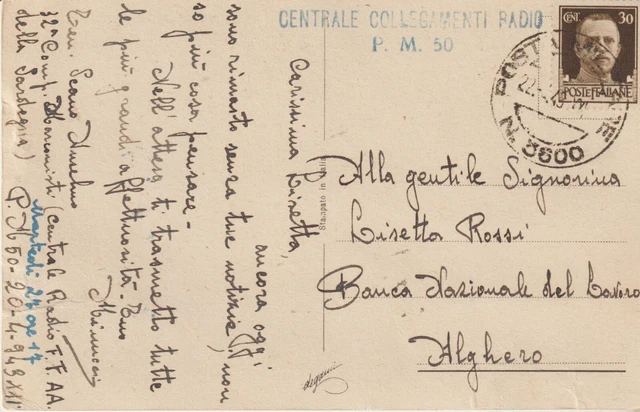 CENTRALE COLLEGAMENTI RADIO
P. M. 50
CENT. 30
POSTE ITALIANE
POSTA
N. 3600
Carissima Lisetta,
ancora oggi
sono rimasto senza tue notizie, non
so più cosa pensare-
Nell'attesa ti trasmetto tutte
le più grandi affettuosità- Tuo
Ten. Scano
32ª Comp. Marconisti (Centrale Radio F.F.AA.
della Sardegna) P.M. 50-20-4-943 XXI
Martedì 27 ore 17
Stampato in
Alla gentile Signorina
Lisetta Rossi
Banca Nazionale del Lavoro
Alghero